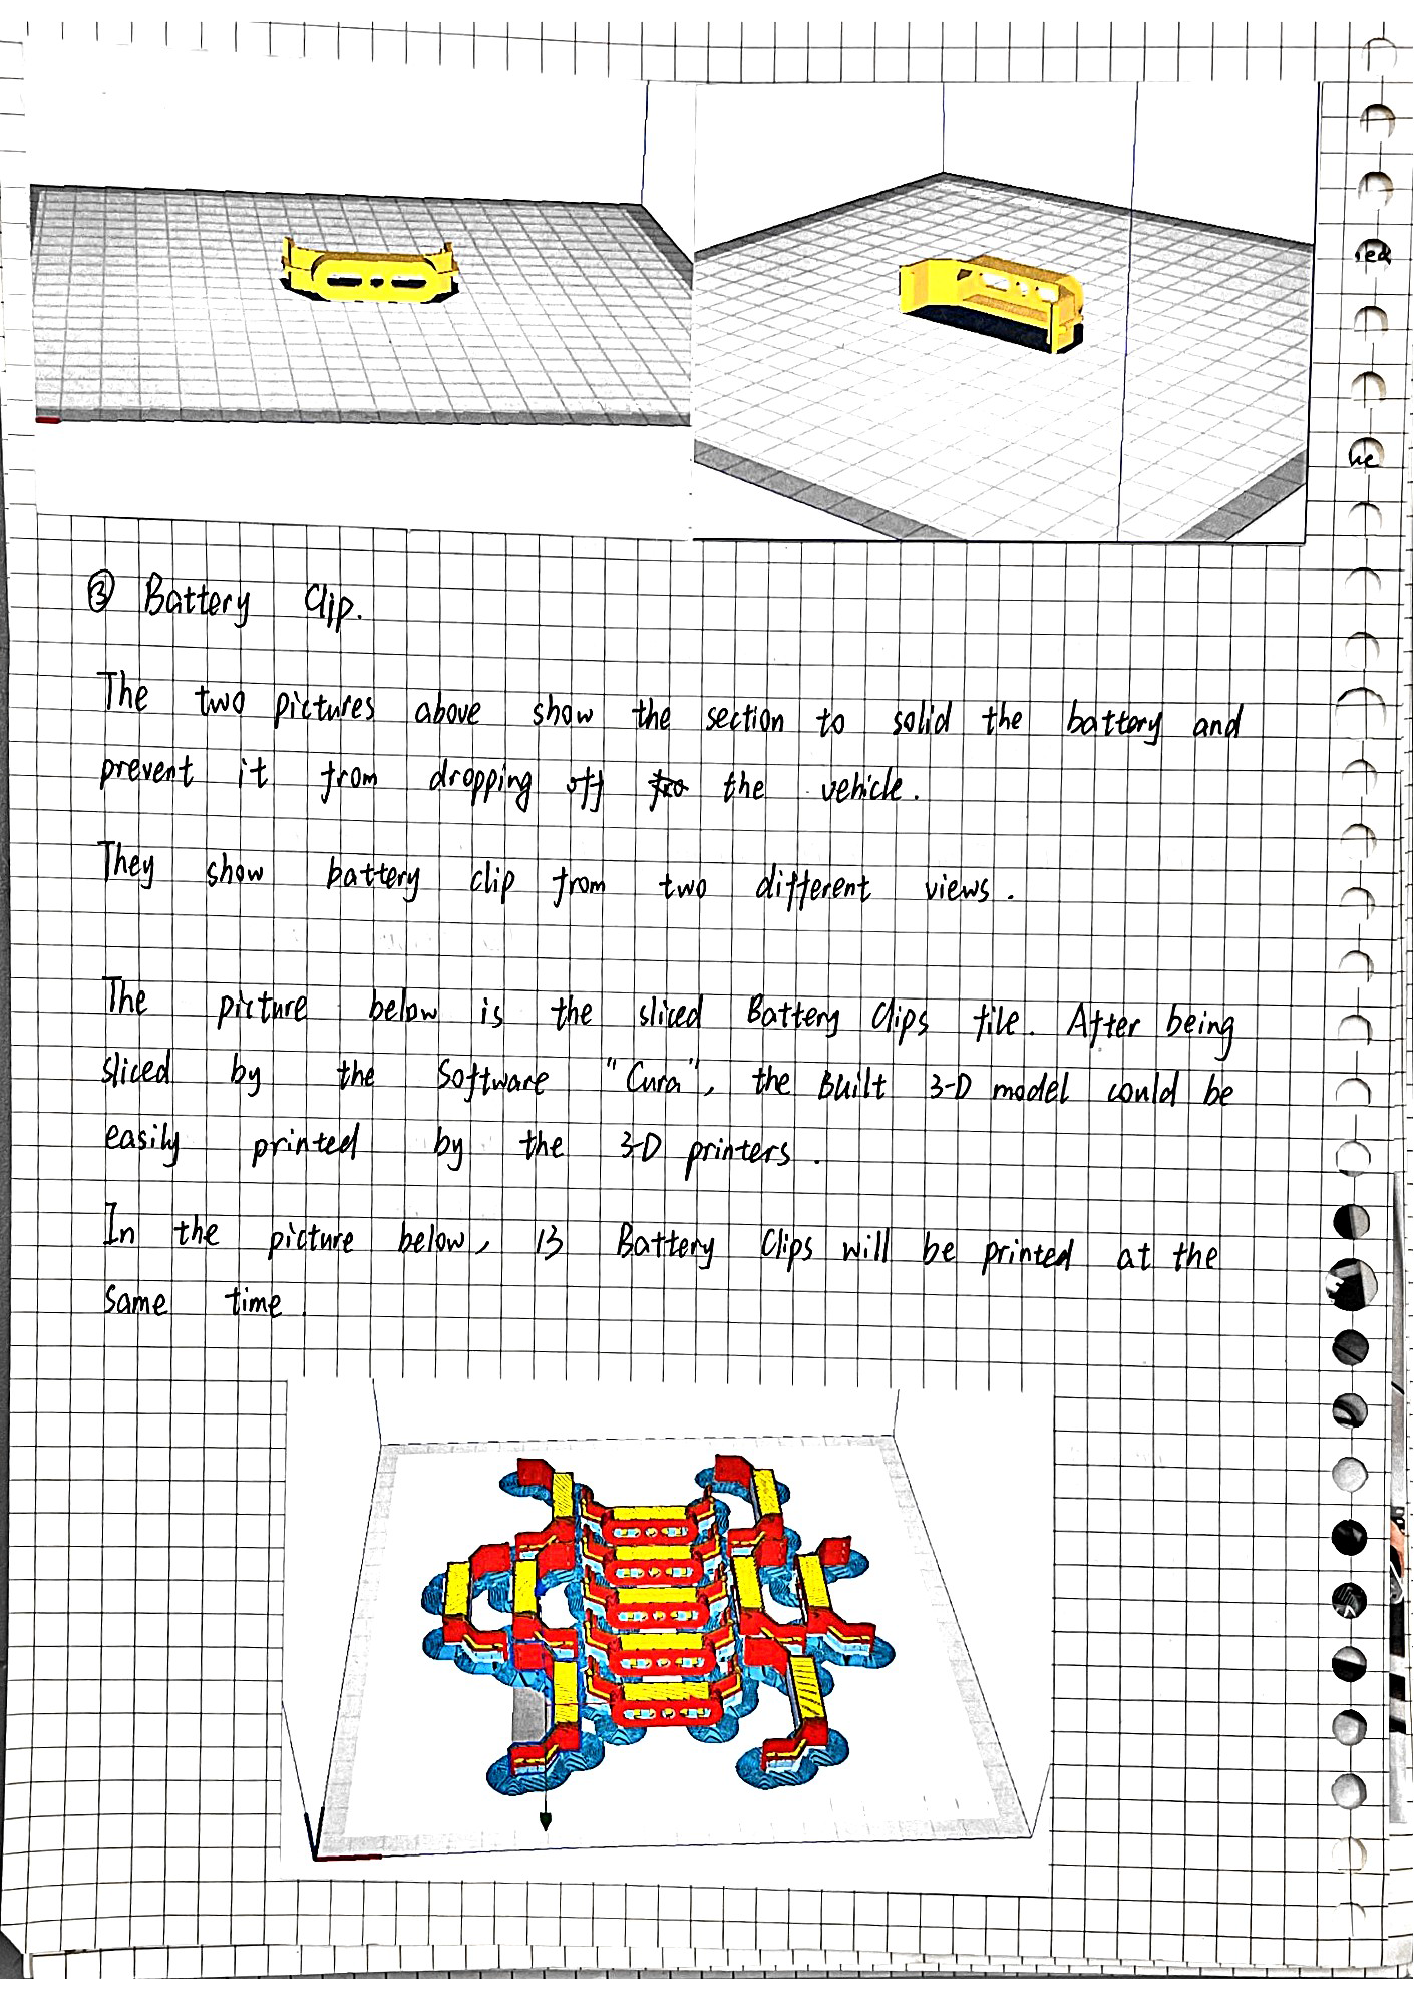 ③ Battery Clip.
The two pictures above show the section to solid the battery and
prevent it from dropping off the vehicle.
They show battery clip from two different views.
The picture below is the sliced Battery Clips file. After being
sliced by the Software "Cura", the Built 3-D model could be
easily printed by the 3-D printers.
In the picture below, 13 Battery Clips will be printed at the
Same time.